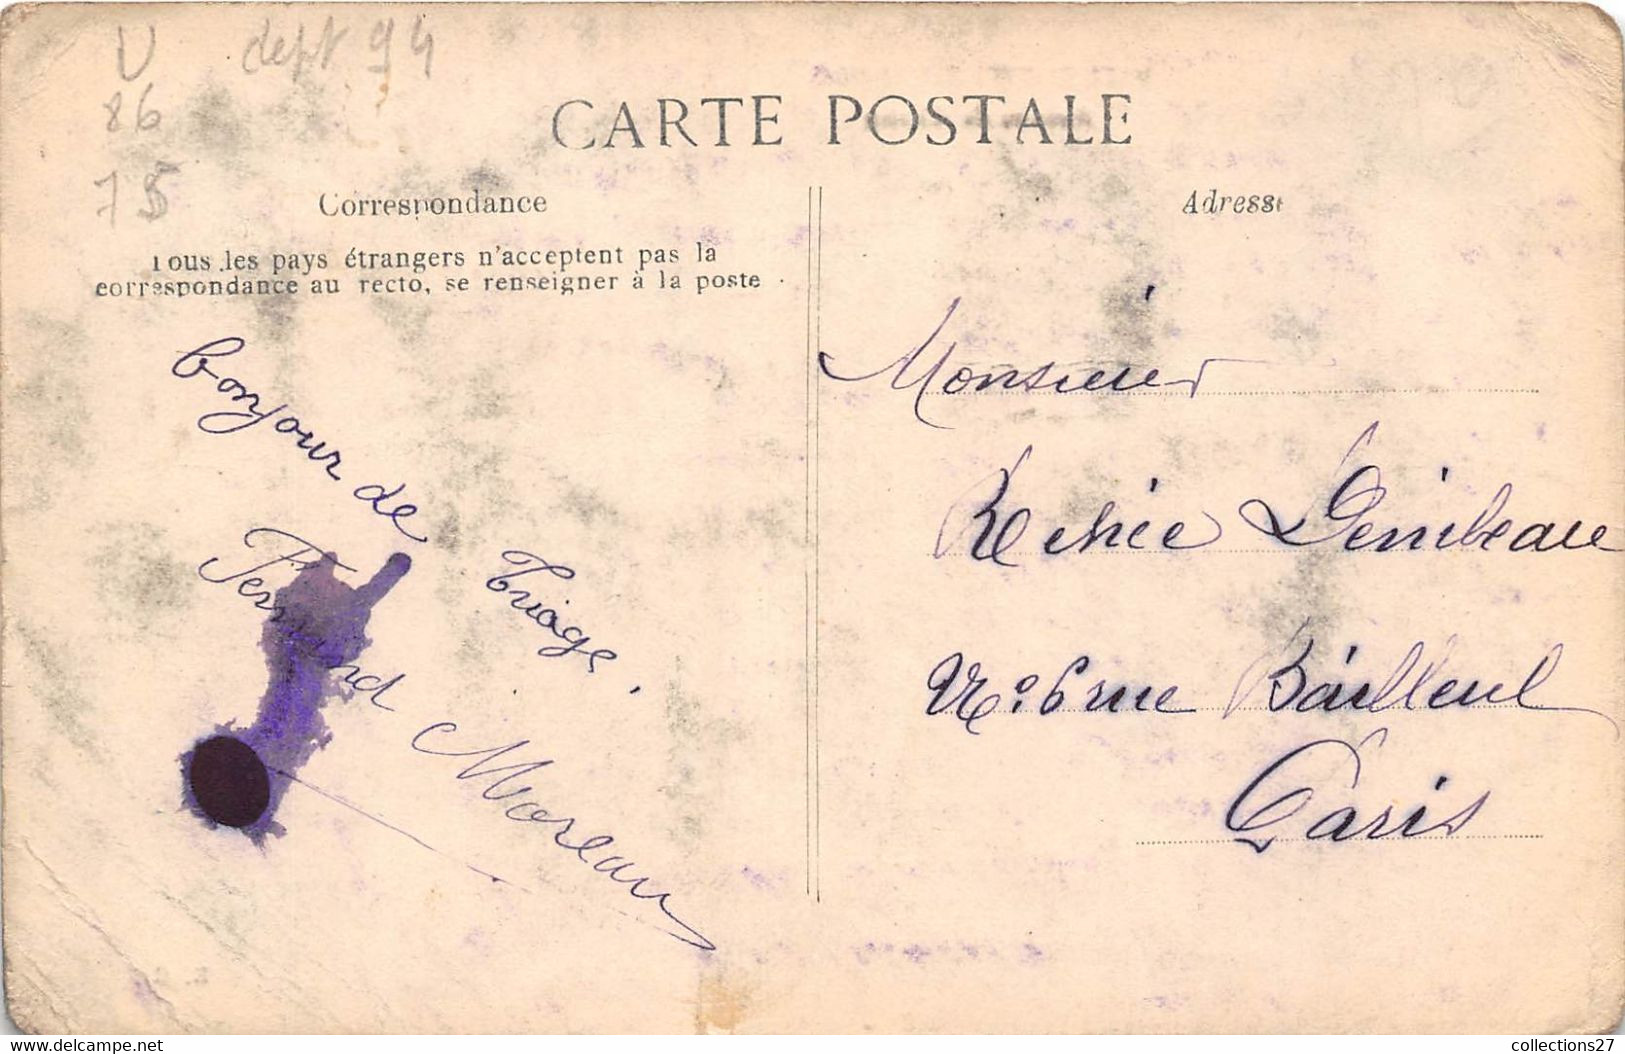 U dept 94
86
75
CARTE POSTALE
Correspondance
Tous les pays étrangers n'acceptent pas la
correspondance au recto, se renseigner à la poste
bonjour de
Triage.
Fernand Moreau
Adresse
Monsieur
N° 6 rue Bailleul
Paris
collections27